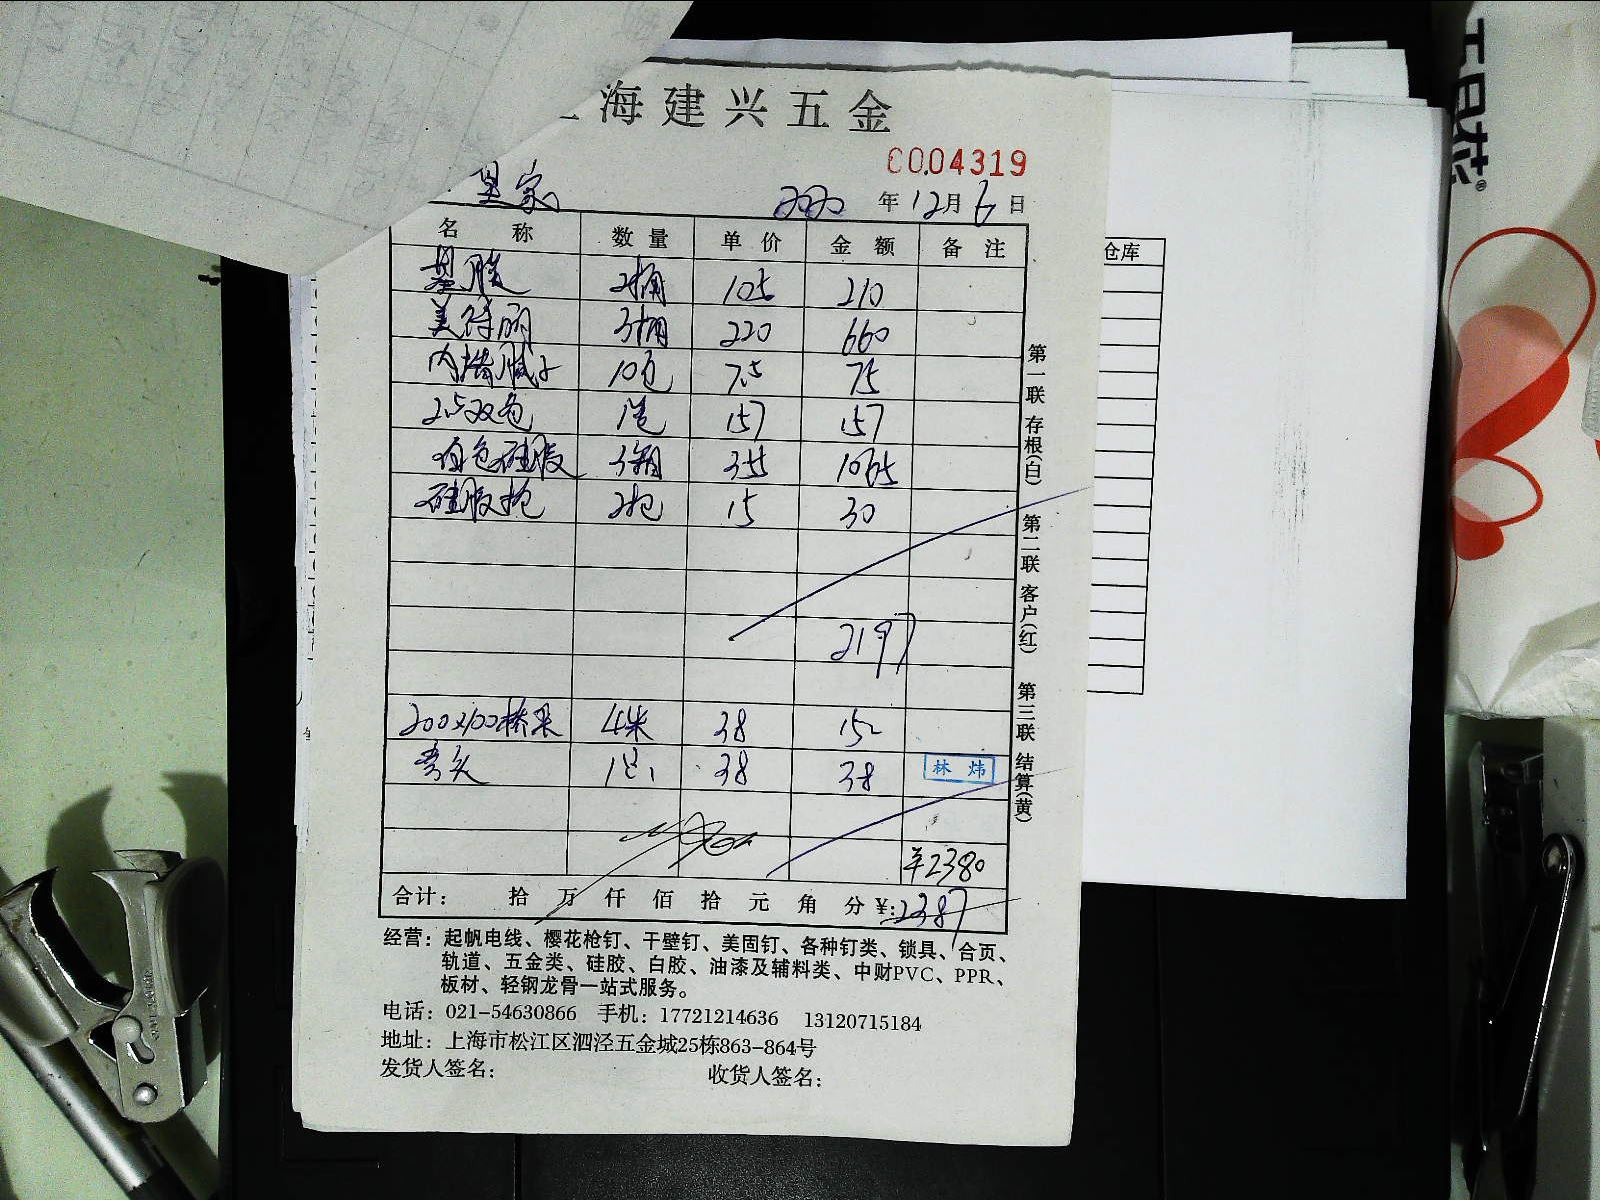 海建兴五金
0004319
皇家
2020年12月6日
名称 数量 单价 金额 备注
基膜 2桶 105 210
美得丽 3桶 220 660
内墙腻子 10包 7.5 75
2.5双色 1卷 157 157
白色硅胶 3箱 355 1065
硅胶枪 2把 15 30
2197
200x100桥架 4米 38 152
弯头 1只 38 38
林炜
¥2380
合计: 拾 万 仟 佰 拾 元 角 分 ¥:2387
经营:起帆电线、樱花枪钉、干壁钉、美固钉、各种钉类、锁具、合页、
轨道、五金类、硅胶、白胶、油漆及辅料类、中财PVC、PPR、
板材、轻钢龙骨一站式服务。
电话:021-54630866 手机:17721214636 13120715184
地址:上海市松江区泗泾五金城25栋863-864号
发货人签名: 收货人签名:
第一联 存根(白) 第二联 客户(红) 第三联 结算(黄)
仓库